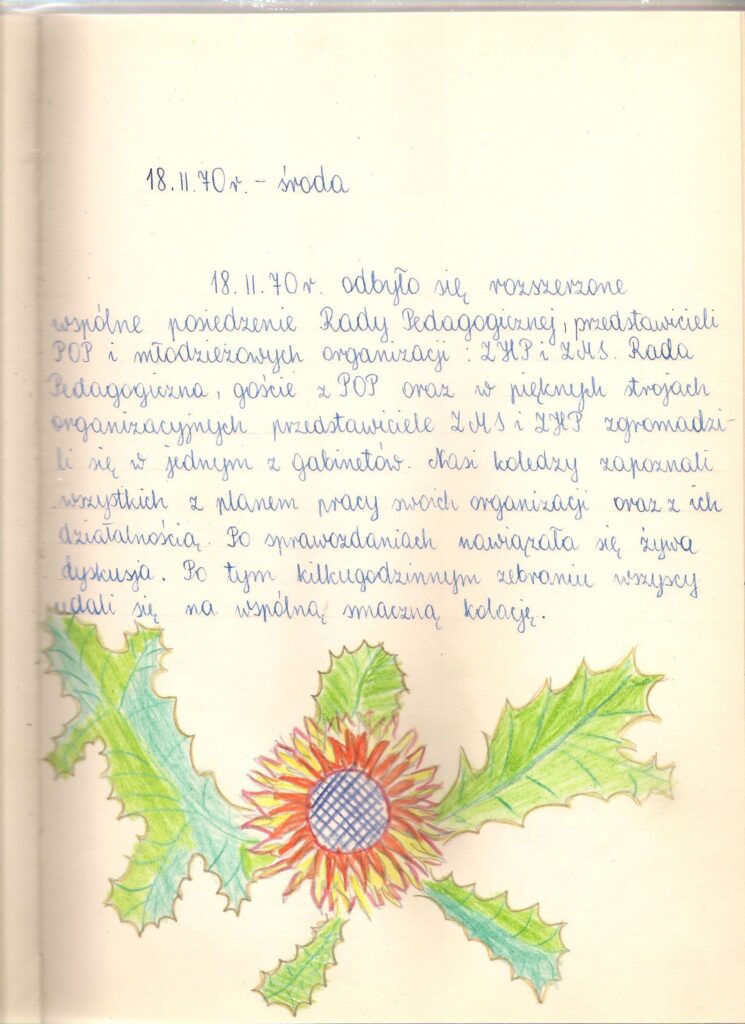 18.II.70r. - środa
18.II.70r. odbyło się rozszerzone
wspólne posiedzenie Rady Pedagogicznej, przedstawicieli
POP i młodzieżowych organizacji : ZHP i ZMS. Rada
Pedagogiczna, goście z POP oraz w pięknych strojach
organizacyjnych przedstawiciele ZMS i ZHP zgromadzi-
li się w jednym z gabinetów. Nasi koledzy zapoznali
wszystkich z planem pracy swoich organizacji oraz z ich
działalnością. Po sprawozdaniach nawiązała się żywa
dyskusja. Po tym kilkugodzinnym zebraniu wszyscy
udali się na wspólną smaczną kolację.